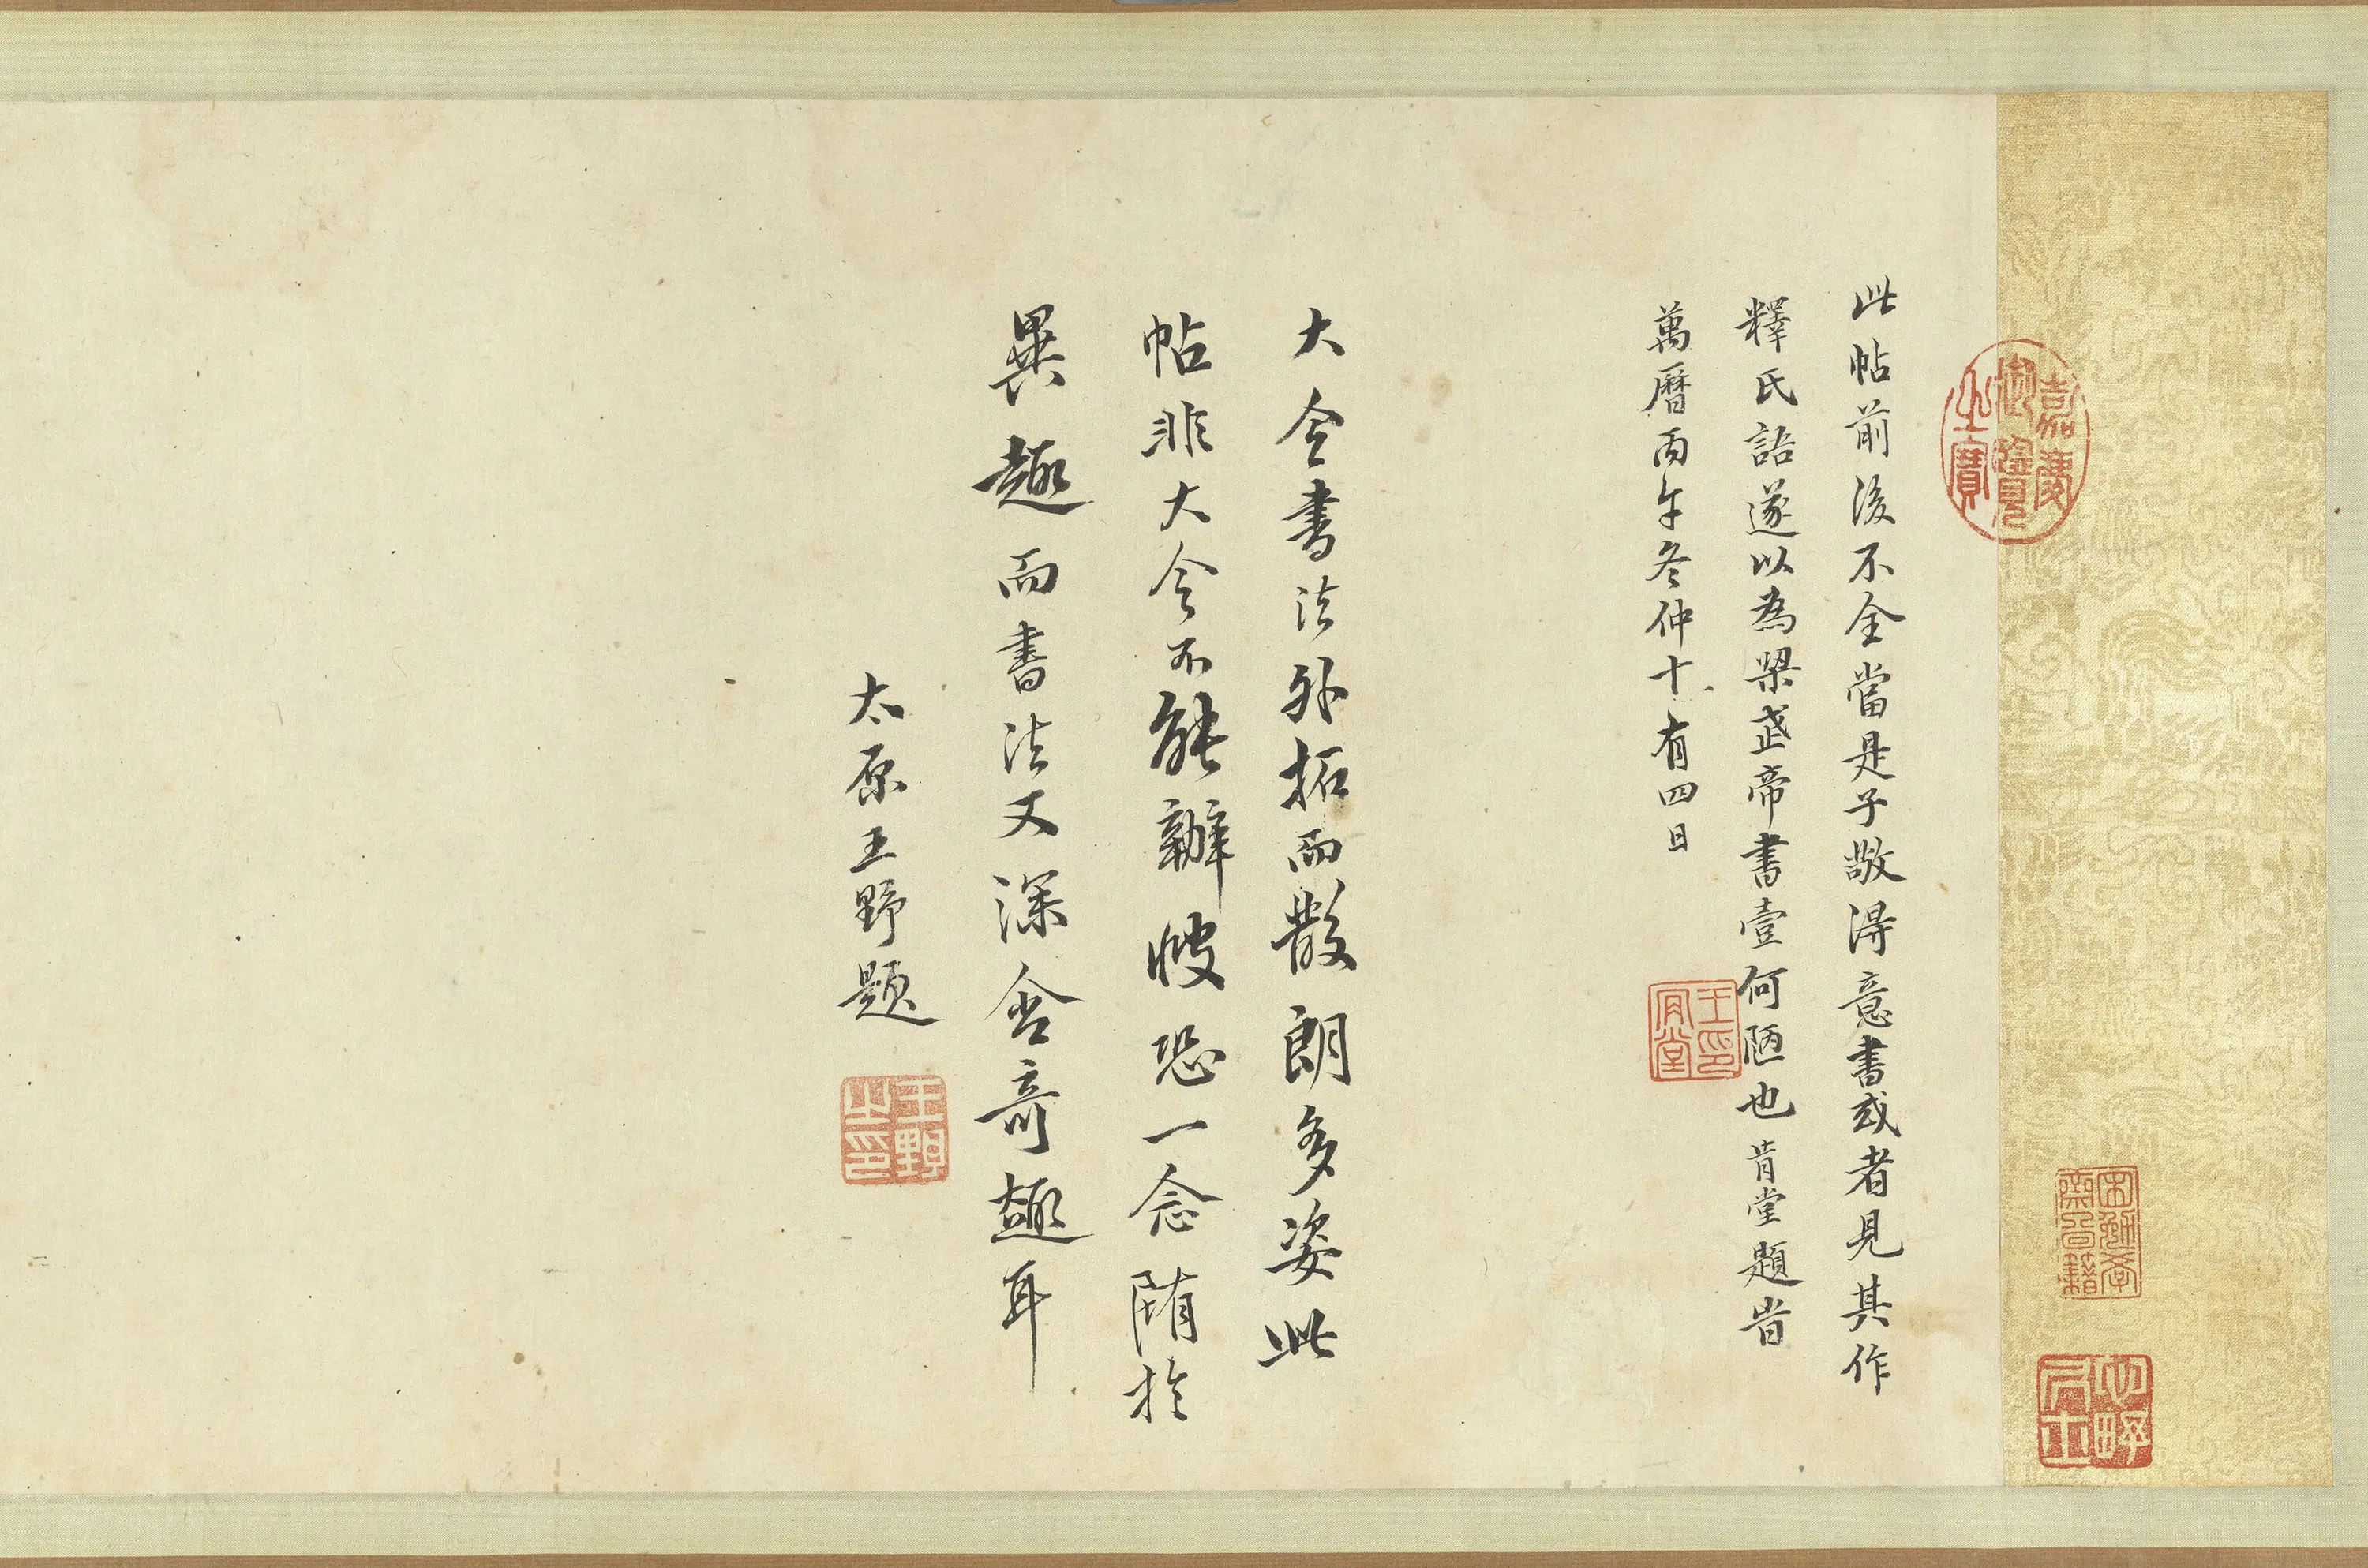 嘉慶
御覽
之寶
此帖前後不全當是子敬得意書或者見其作
釋氏語遂以為梁武帝書壹何陋也肯堂題旹
萬曆丙午冬仲十有四日
王印
肯堂
大令書法外拓而散朗多姿此
帖非大令不能辦㥰恐一念隋於
異趣而書法又深含奇趣耳
太原王野題
王野
之印